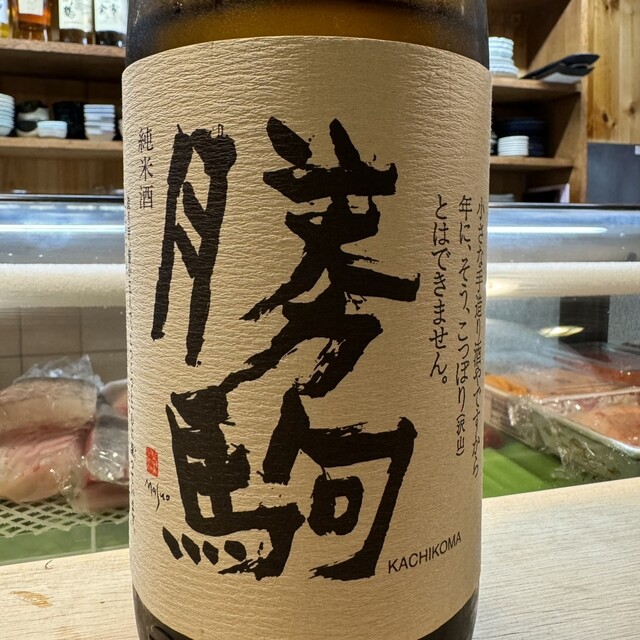 小さな手造り酒屋ですから
年に、そう、こっぽり(沢山)
とはできません。
勝駒
純米酒
KACHIKOMA
Masuo